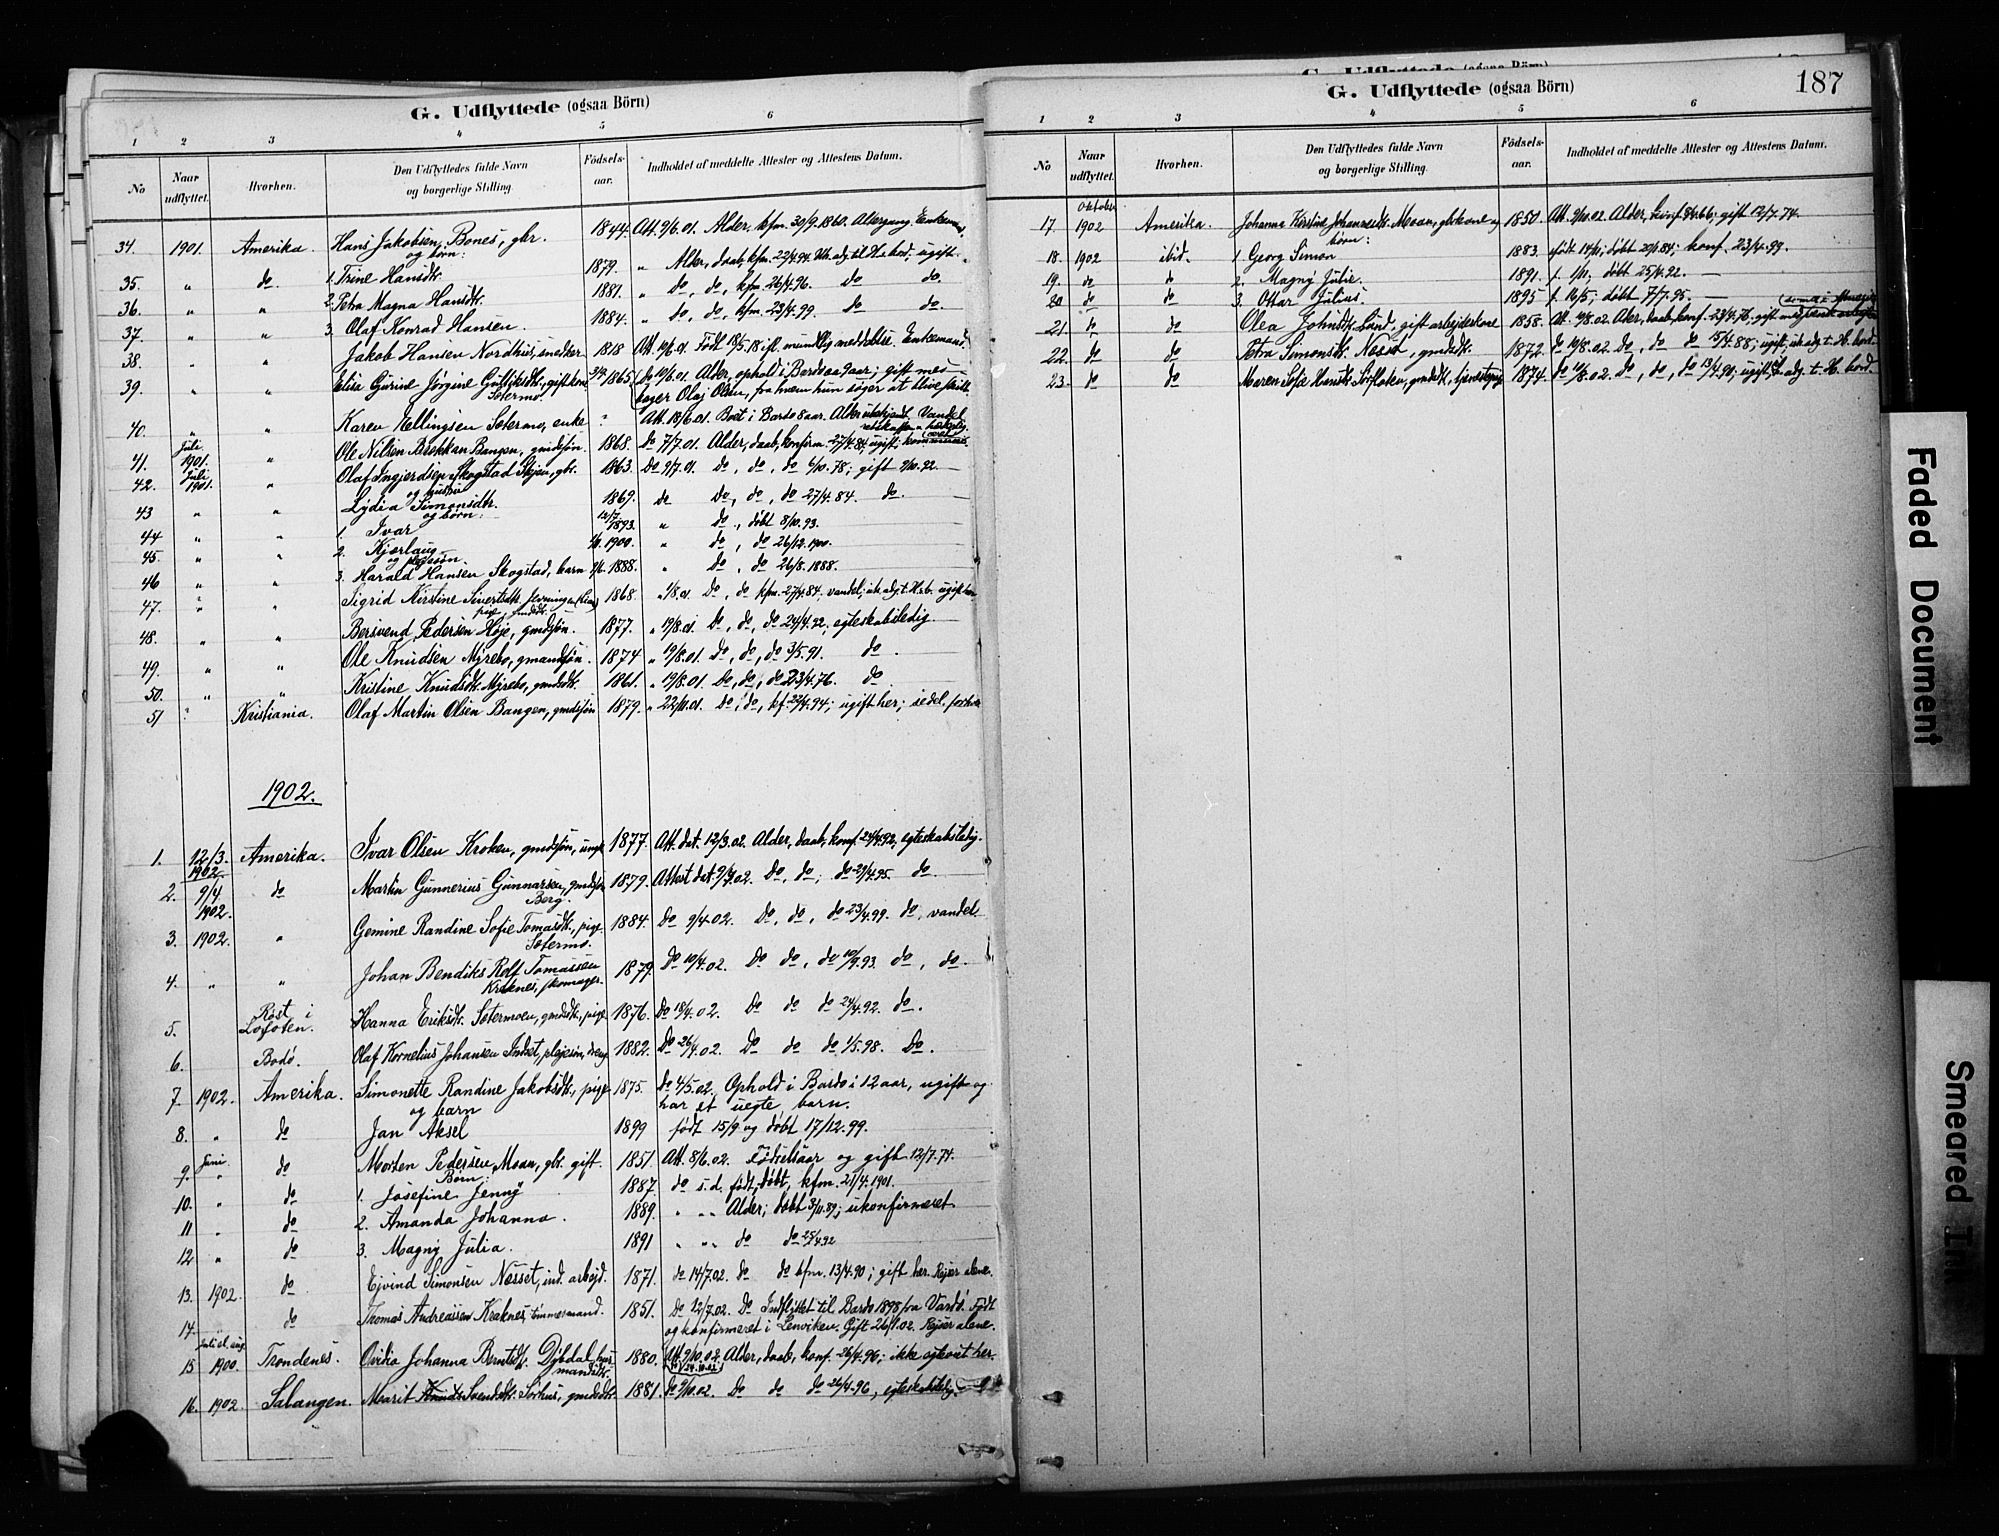 G. Udflyttede (ogsaa Börn)
1 2 3 4 5 6
No Naar udflyttet. Hvorhen. Den Udflyttedes fulde Navn og borgerlige Stilling. Fødsels-aar. Indholdet af meddelte Attester og Attestens Datum.
34. 1901. Amerika. Hans Jakobsen Bones, gbr. 1844. Att. 9/6.01. Alder, kfm. 30/9.1860. Altergang. Enkemand.
og børn:
35. " do 1. Trine Hansdtr. 1879. " Alder, daab, kfm. 22/4.94. Utr. adj. til H.s bord; ugift.
36. " " 2. Petra Magna Hansdtr. 1881. " do, do, kfm. 26/4.96. do do.
37. " " 3. Olaf Konrad Hansen. 1884. " do, do, kfm. 23/4.99. do do.
38. " " Jakob Hansen Nordhus, snedker 1818 Att. 19/6.01. Født 18/5.18 ifl. mundtlig meddelelse. Enkemand.
39. " " Elise Gurine Jørgine Gulliksdtr., gift kone 1865 Do 19/6.01. Alder, ophold i Bardo aar; gift med
Setermo. bager Olaj Olsen, fra hvem hun søger at blive skilt.
40. " " Karen Hellingsen Setermo, enke ? Att. 18/6.01. Boet i Bardo 8 aar. Alder ubekjendt. Vandel
41. Juli 1901. " Ole Nilsen Brekkan Bangen, gmdsøn. 1868. Do 7/7.01. Alder, daab, konfirm. 27/4.84; ugift;
42. Juli 1901. " Olaf Ingjerdsen Skogstad, gbr. 1863. Do 9/7.01. do, do, do 6/10.78; gift 9/10.92.
og hustru
43 " " Lydia Simonsdtr. 1869. Do Do, do, do 27/4.84. do.
og børn:
44 " " 1. Ivar 12/7 1893. " do, døbt 8/10.93.
45. " " 2. Kjærlaug 1900. " do, do 26/12.1900.
og plejesøn.
46 " " 3. Harald Hansen Skogstad, barn 1888. " do, do 26/8.1888.
47. " " Sigrid Kirstine Sivertsdtr. 1868. " 1/8.01 Do, do kfm. 27/4.84. vandel; utr. adj. t. H.s b. ugift her
pige, gmdsdtr.
48. " " Bersvend Pedersen Høje, gmdsøn. 1877. " 19/8.01 Do, do, do 24/4.92, egteskabsledig
49. " " Ole Knudsen Myrebo, gmandsøn. 1874 " 19/8.01. Do, do, do 3/5.91. do.
50. " " Kristine Knudsdtr. Myrebo, gmdsdtr. 1861. " 19/8.01. Do, do, do 23/4.76. do.
51 " Kristiania. Olaf Martin Olsen Bangen, gmdsøn 1879. " 22/11.01. Do, do, kf. 22/4.94; ugift her; sedel. forhold
1902.
1. 12/3. 1902 Amerika. Ivar Olsen Kroken, gmdsøn, ungk. 1877. Att. dat. 12/3.02. Alder, daab, konf. 24/4.92, egteskabsledig.
2. 9/4 1902. do Martin Gunnerius Gunnarsen, gmdsøn 1879. Attest dat. 9/4.02. Do, do, do 21/4.95. do.
Berg.
3. 1902. " Gemine Randine Sofie Tomasdtr., pige 1884. Do 9/4.02. Do, do, do 23/4.99. do, vandel
Setermo.
4. " " Johan Bendiks Rolf Tomassen 1879. Do 10/4.02. Do do, do 10/9.93. do, do.
Kraknes, skomager.
5. Røst i Lofoten. Hanna Eriksdtr. Setermoen, gmdsdtr., pige 1876. Do 18/4.02. Do do do 24/4.92. do.
6. Bodø. Olaf Kornelius Johansen Indset, plejesøn, dreng 1882. Do 26/4.02. Do do do 1/5.98. Do.
7. 1902. Amerika. Simonette Randine Jakobsdtr., pige 1875. Do 4/5.02. Ophold i Bardo i 12 aar, ugift og
og barn har et uegte barn.
8. " do Jan Aksel 1899 født 15/9 og døbt 17/12.99.
9. Juni. " do Morten Pedersen Moan, gbr. gift. 1851. Att. 8/6.02. Fødselsaar og gift 12/7.74.
Børn:
10. " do 1. Josefine Jenny 1887. do s.d. født, døbt, kfm. 21/4.1901.
11 " do 2. Amanda Johanna. 1889. " " Alder; døbt 3/11.89; ukonfirmeret
12 " do 3. Magny Julia. 1891 " " do do 25/4.92
13. 1902. do Ejvind Simonsen Nesset, ind. arbejd. 1871. do 14/7.02. do do kfm. 13/4.90; gift her. Rejser alene.
14. do Thomas Andreassen Kraknes, tømmermand. 1851. Do 12/7.02. Do Indflyttet til Bardo 1898 fra Vardö. Født
og konfirmeret i Lenviken. Gift 26/1.02. Rejser alene.
15 Juli el. aug. 1900. Trondenes. Ovidia Johanna Berntsdtr. Dybdal, hus- 1880. Att. 9/10.02. Alder, daab, konf. 26/4.96; ikke egteviet her.
mandsdtr.
16. 1902. Salangen. Marit Svendsdtr. Sørhus, gmdsdtr. 1881. do 9/10.02. Do do do 26/4.96, egteskabsledig
187
G. Udflyttede (ogsaa Börn)
1 2 3 4 5 6
No Naar udflyttet. Hvorhen. Den Udflyttedes fulde Navn og borgerlige Stilling. Fødsels-aar. Indholdet af meddelte Attester og Attestens Datum.
17. Oktober 1902 Amerika. Johanna Kirstine Johannesdtr. Moan, gbrkone og 1850. Att. 9/10.02. Alder, konf. 66; gift 12/7.74.
børn:
18. 1902 ibid. 1. Georg Simon 1883. født 14/11; døbt 20/1.84; konf. 23/4.99.
19. do do 2. Magny Julie. 1891. f. 1/10; døbt 25/4.92.
20 do do 3. Ottar Julius. 1895 f. 16/5; døbt 7/7.95.
21. do do Olea Johnsdtr. Lund, gift arbejderkone 1858. Att. 19/8.02. Alder, daab, konf. 23/4.76, gift
22. do do Petra Simonsdtr. Nesset, gmdsdtr. 1872. do 19/8.02. Do, do do 15/4.88; ugift, utr. adj. t. H. bord.
23. do do Maren Sofie Hansdtr. Sørfloten, gmdsdtr., tjenestepige 1874. do 11/8.02. Do, do, do 13/4.90; ugift, adj. t. H. bord.
Faded Document
Smeared Ink